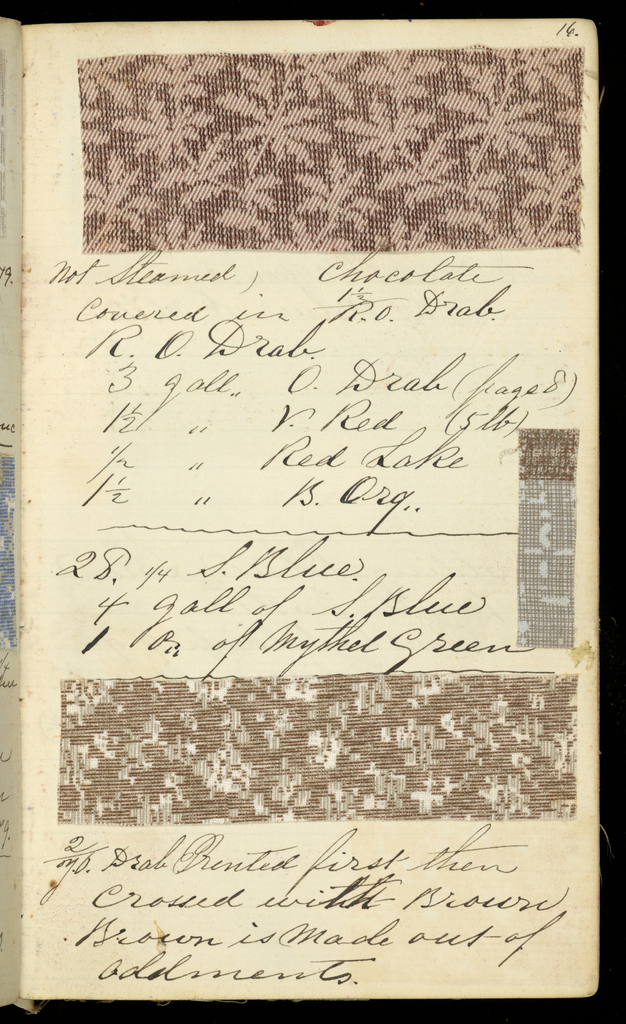 16.
not Steamed, Chocolate
covered in 1½/R.O. Drab.
R. O. Drab.
3 gall,, O. Drab (page 8)
1½ " V. Red (5 lb)
½ " Red Lake
1½ " B. Org,,
28. ¼ S. Blue.
4 gall of S. Blue
1 oz of Mythel Green
2/ Drab Prented first then
Crossed with Brown
Brown is Made out of
oddments.
79.